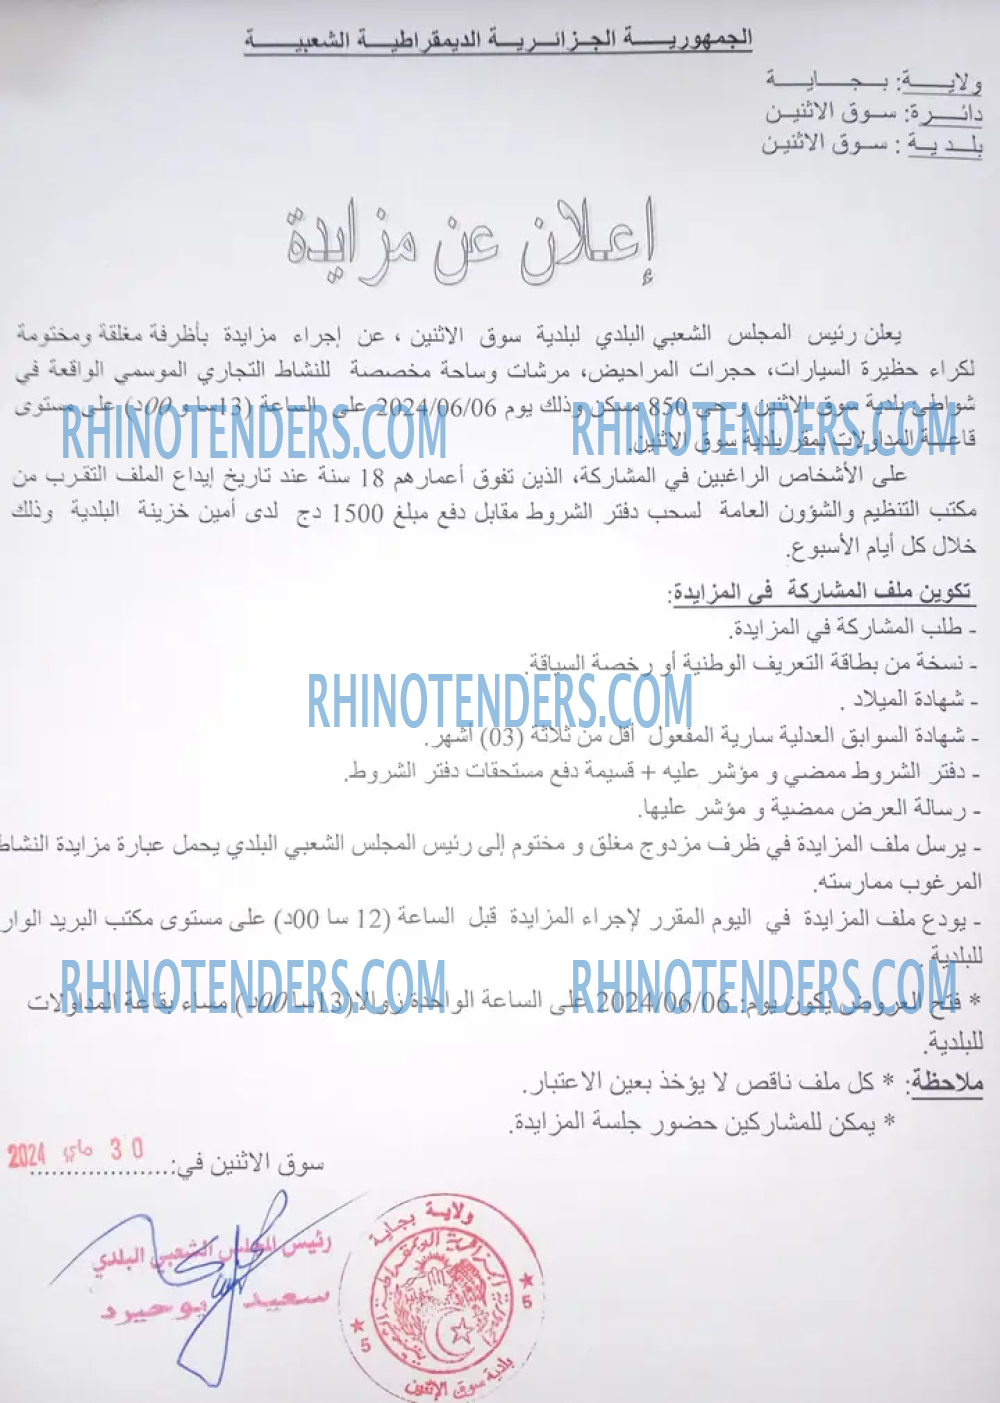 الجمهوريـــة الجـزائـريـة الديمقراطيـة الشعبيـــة
ولايـــة: بــجــايــة
دائــرة: ســوق الاثنيــن
بلــديــة : ســوق الاثنيــن
إعـلان عن مزايدة
يعلن رئيس المجلس الشعبي البلدي لبلدية سوق الاثنين ، عن إجراء مزايدة بأظرفة مغلقة ومختومة
لكراء حظيرة السيارات، حجرات المراحيض، مرشات وساحة مخصصة للنشاط التجاري الموسمي الواقعة في
شواطئ بلدية سوق الاثنين و حي 850 مسكن وذلك يوم 2024/06/06 على الساعة (13سا و 00د) على مستوى
قاعــة المداولات بمقر بلدية سوق الاثنين.
على الأشخاص الراغبين في المشاركة، الذين تفوق أعمارهم 18 سنة عند تاريخ إيداع الملف التقرب من
مكتب التنظيم والشؤون العامة لسحب دفتر الشروط مقابل دفع مبلغ 1500 دج لدى أمين خزينة البلدية وذلك
خلال كل أيام الأسبوع.
تكوين ملف المشاركة في المزايدة:
- طلب المشاركة في المزايدة.
- نسخة من بطاقة التعريف الوطنية أو رخصة السياقة.
- شهادة الميلاد .
- شهادة السوابق العدلية سارية المفعول أقل من ثلاثة (03) أشهر.
- دفتر الشروط ممضي و مؤشر عليه + قسيمة دفع مستحقات دفتر الشروط.
- رسالة العرض ممضية و مؤشر عليها.
- يرسل ملف المزايدة في ظرف مزدوج مغلق و مختوم إلى رئيس المجلس الشعبي البلدي يحمل عبارة مزايدة النشاط
المرغوب ممارسته.
- يودع ملف المزايدة في اليوم المقرر لإجراء المزايدة قبل الساعة (12 سا 00د) على مستوى مكتب البريد الوار
للبلدية .
* فتح العروض يكون يوم: 2024/06/06 على الساعة الواحدة زوالا(13سا00د) مساء بقاعة المداولات
للبلدية.
ملاحظة: * كل ملف ناقص لا يؤخذ بعين الاعتبار.
* يمكن للمشاركين حضور جلسة المزايدة.
سوق الاثنين في:.................... 30 ماي 2024
رئيس المجلس الشعبي البلدي
سعيد بوحيرد
ولاية بجاية
الجمهورية الجزائرية الديمقراطية الشعبية
بلدية سوق الإثنين
5
5
RHINOTENDERS.COM
RHINOTENDERS.COM
RHINOTENDERS.COM
RHINOTENDERS.COM
RHINOTENDERS.COM